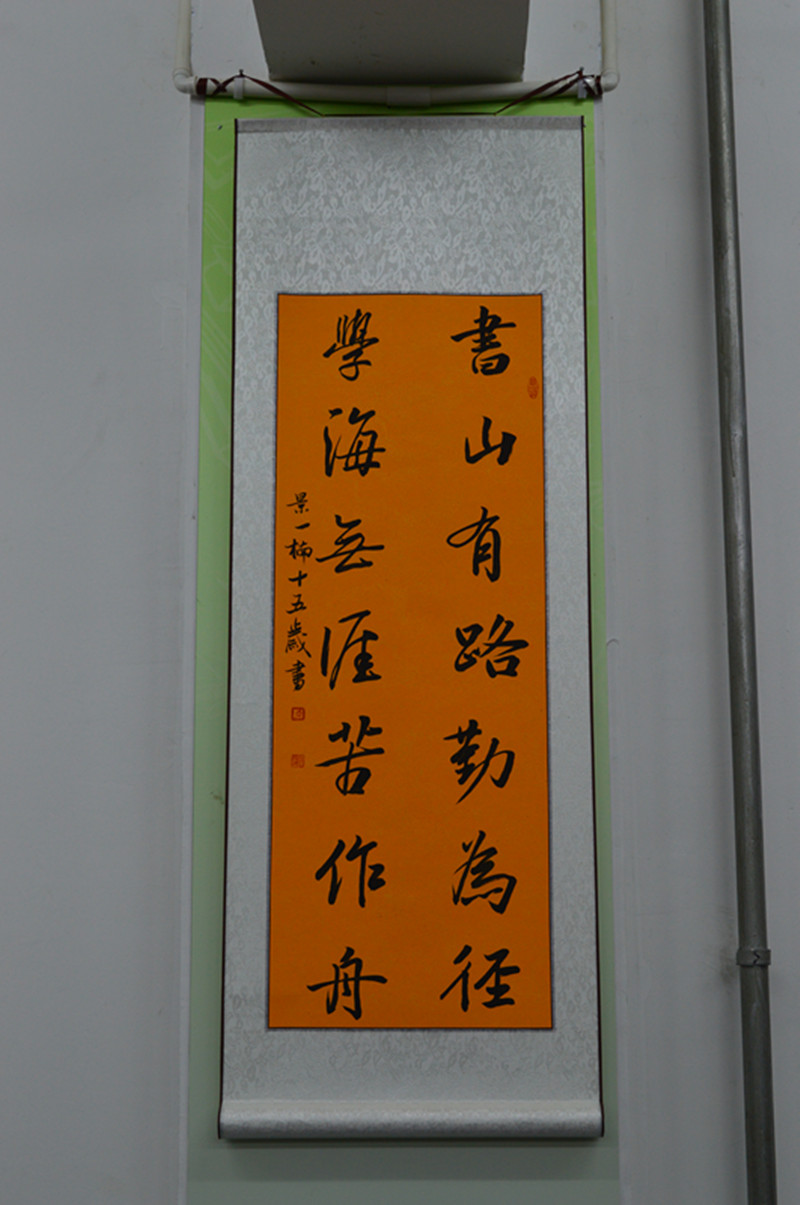 書山有路勤為徑
學海無涯苦作舟
景一楠十五歲書